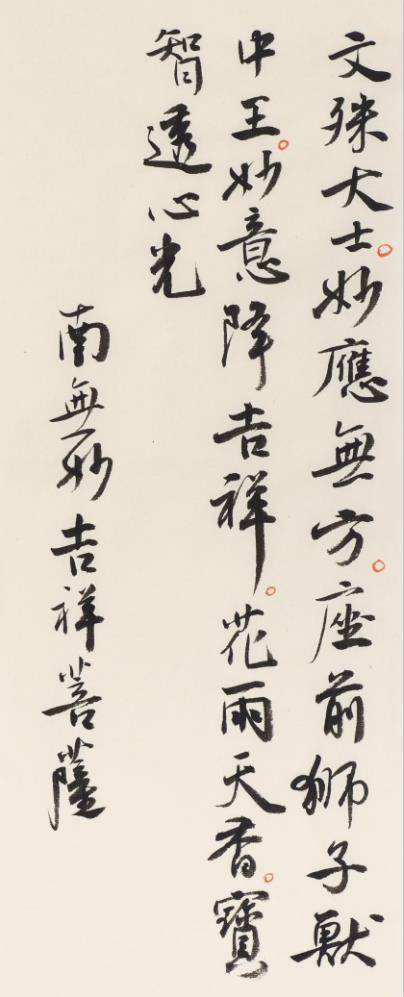 文殊大士。妙應無方。座前獅子獸
中王。妙意降吉祥。花雨天香。寶
智透心光
南無妙吉祥菩薩